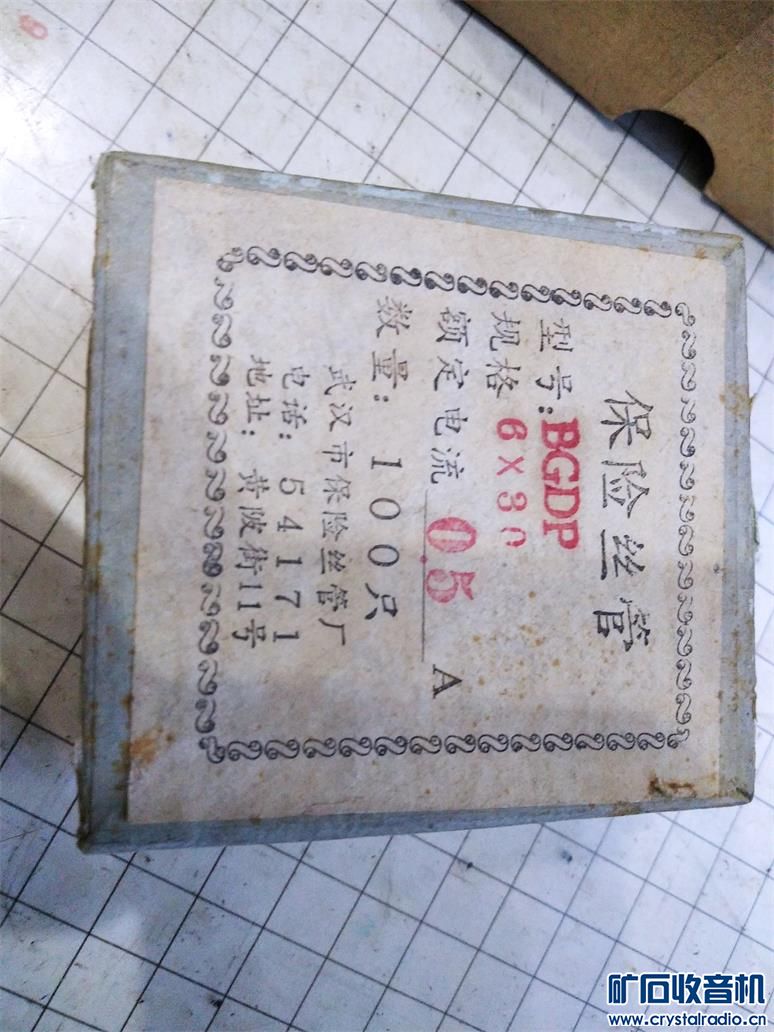 保险丝管
型号：BGDP
规格 6×30
额定电流 0.5 A
数量：100只
武汉市保险丝管厂
电话：54171
地址：黄陂街11号
矿石收音机
www.crystalradio.cn